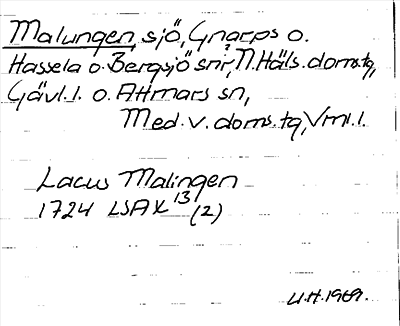 Malungen, sjö, Gnarps o.
Hassela o. Bergsjö snr, N. Häls. doms.tg,
Gävl. l. o. Attmars sn,
Med. v. doms. tg, Vnl. l.
Lacus Malingen
1724 LSAX 13 (2)
U.H. 1969.